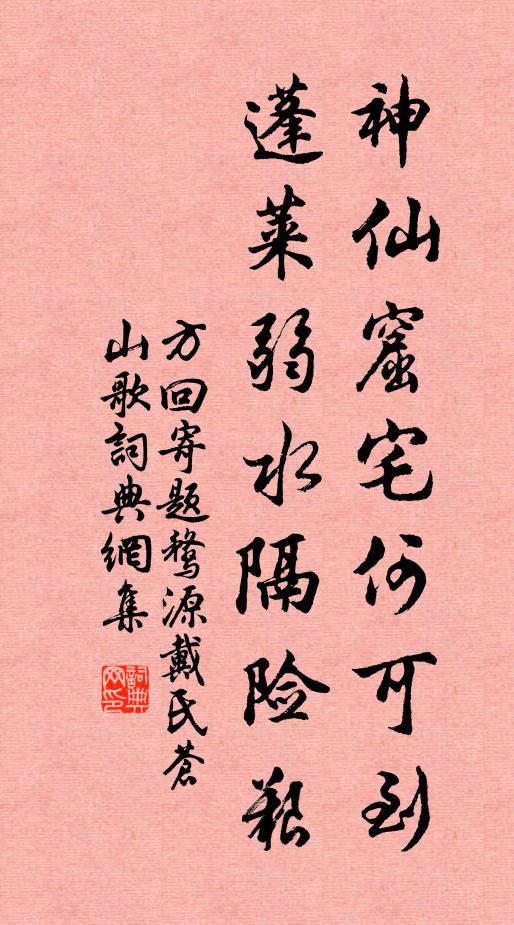 神仙窟宅何可到
蓬莱弱水隔险艰
方回寄题婺源戴氏苍
山歌词典網集
詞典
网印